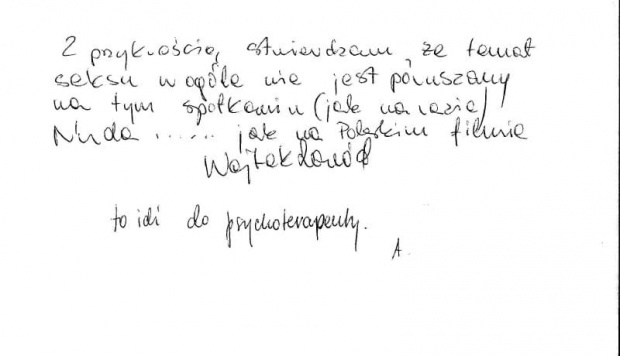 Z przykrością, stwierdzam, że temat
seksu w ogóle nie jest poruszany
na tym spotkaniu (jak na razie)
Nuda ...... jak na Polskim filmie
to idź do psychoterapeuty.
A.